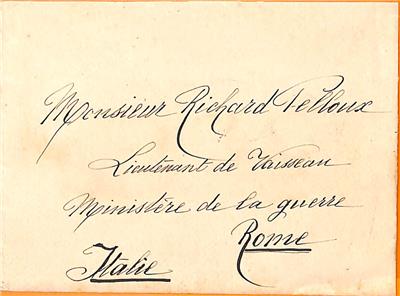 Monsieur Richard Pelloux
Lieutenant de Vaisseau
Ministère de la guerre
Rome
Italie